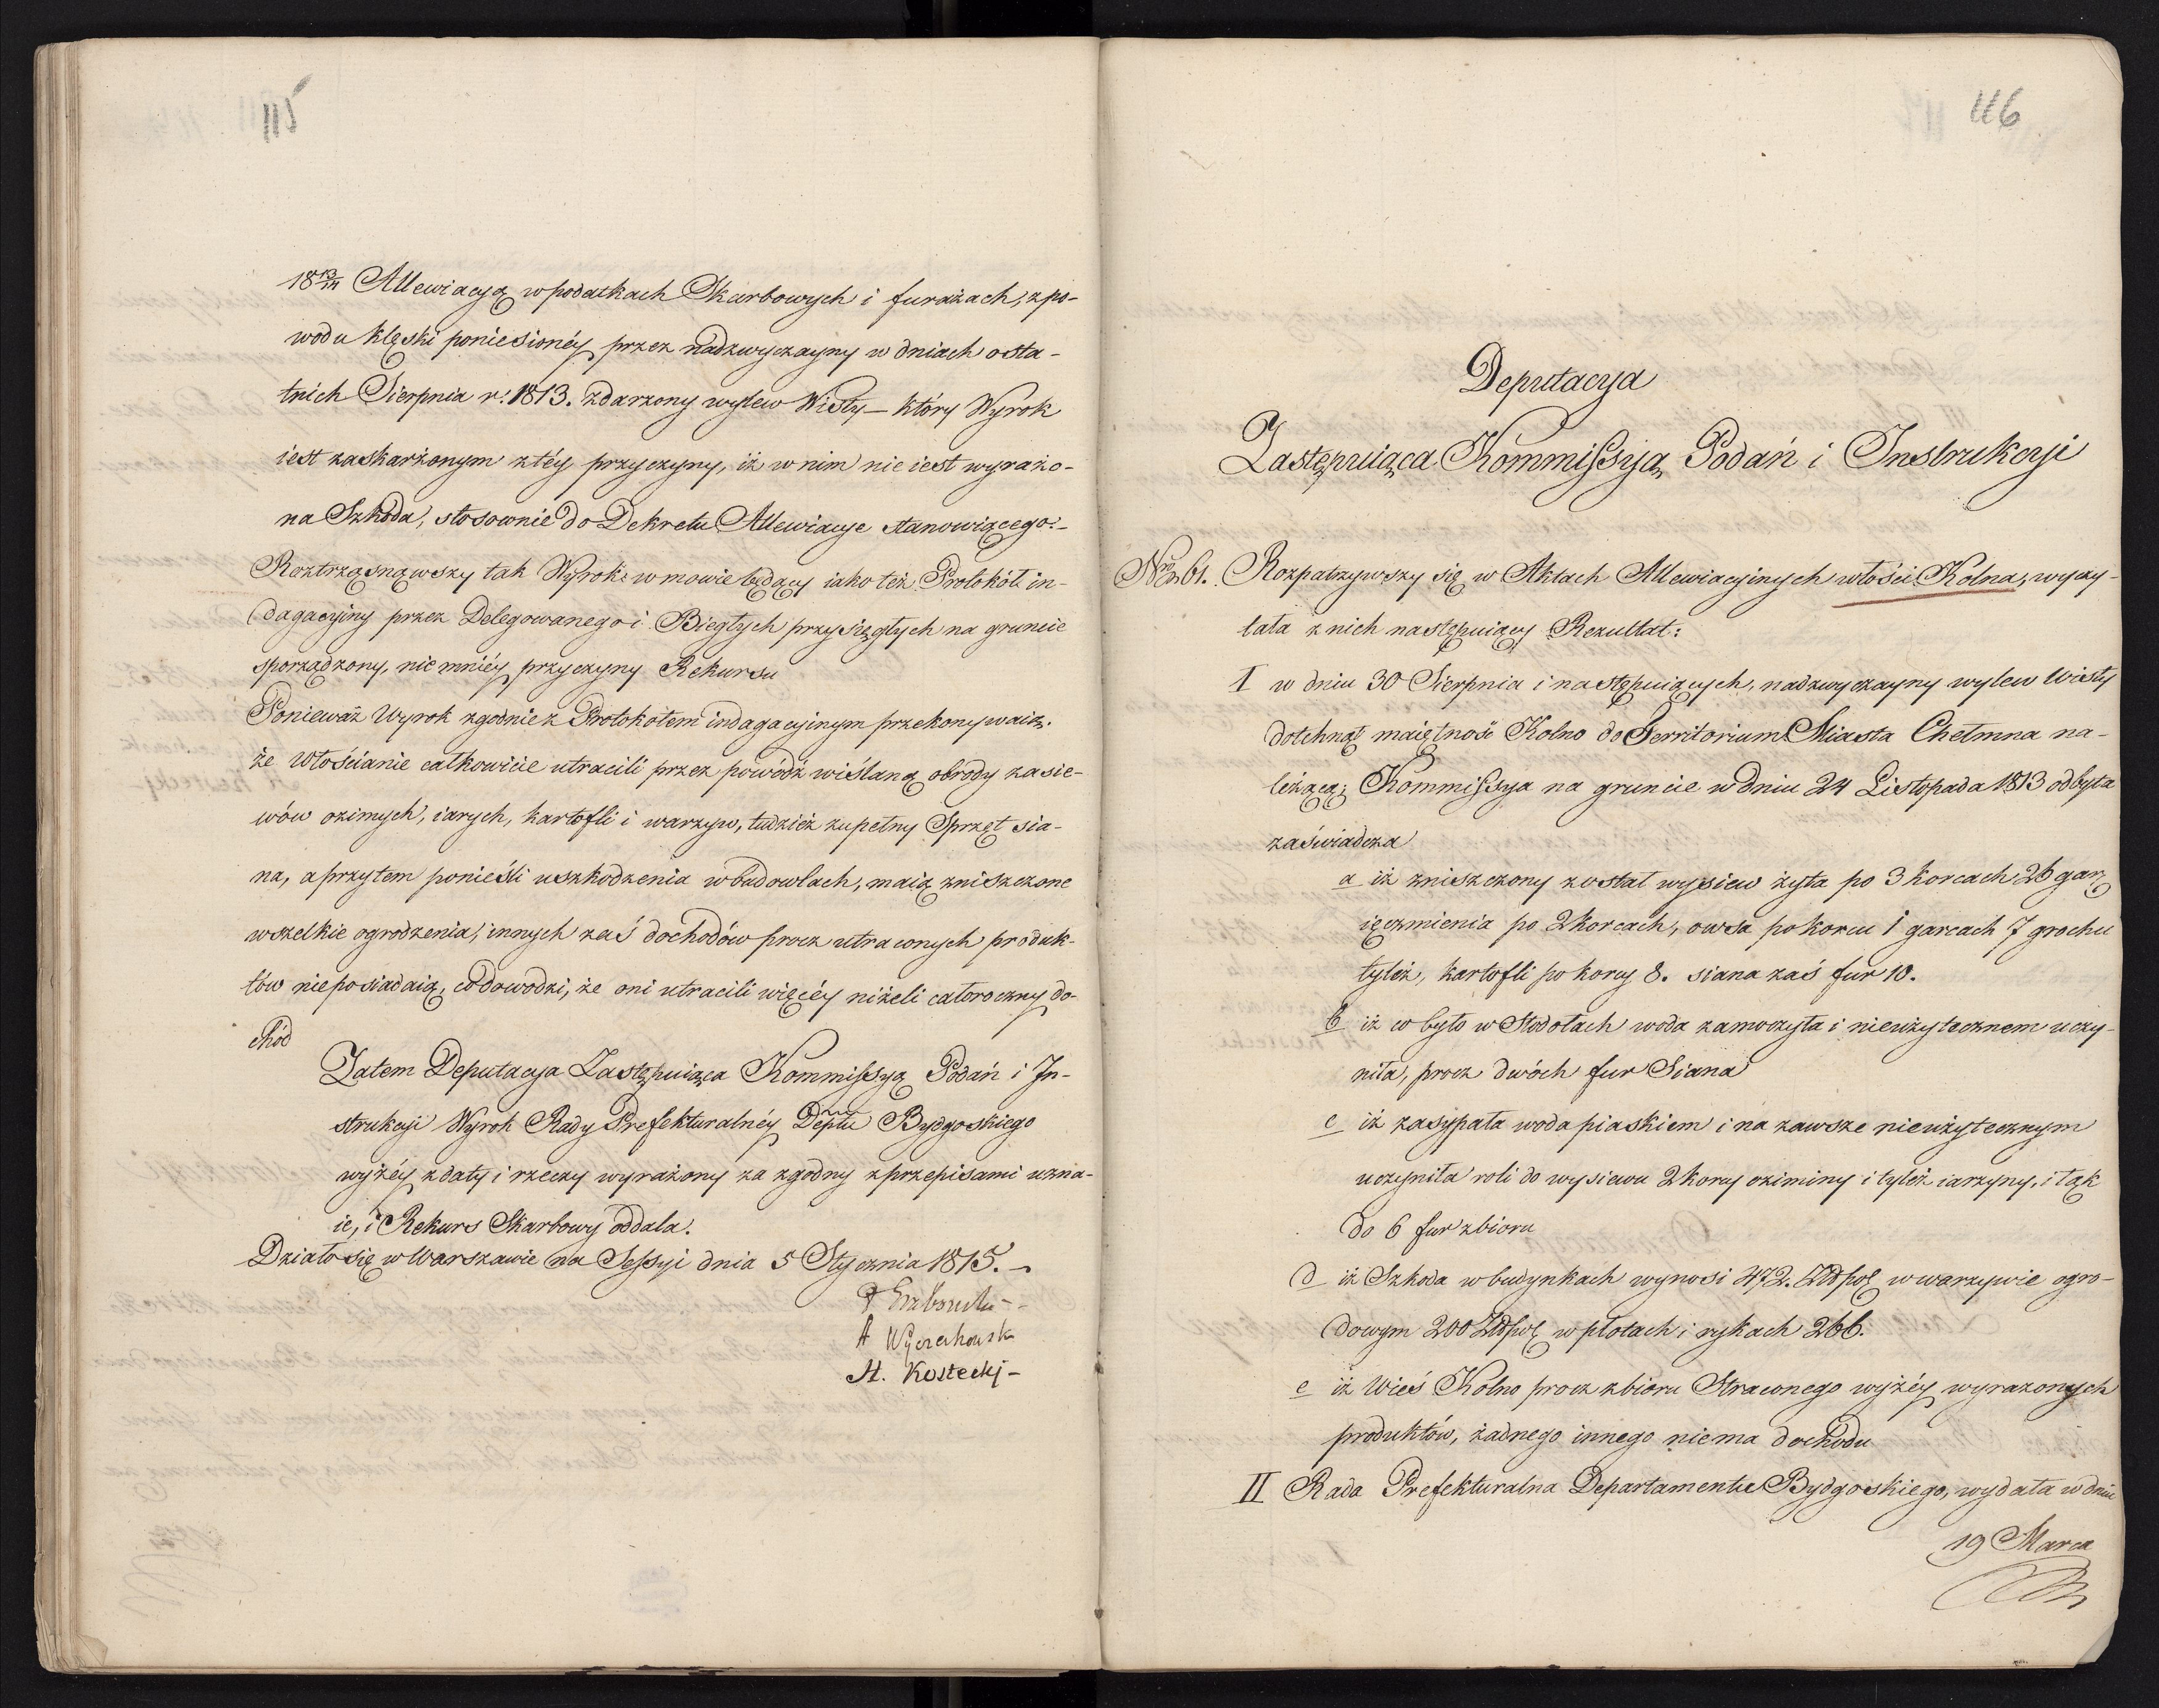 115
18 13/14 Allewiacyą w podatkach Skarbowych i furażach, z po-
wodu klęski poniesionéy przez nadzwyczayny w dniach osta-
tnich Sierpnia r: 1813. zdarzony wylew Wisły – który Wyrok
iest zaskarżonym z téy przyczyny, iż w nim nie iest wyrażo-
na Szkoda, stosownie do Dekretu Allewiacye stanowiącego. –
Roztrząsnąwszy tak Wyrok w mowie będący iako też Protokół in-
dagacyiny przez Delegowanego i Biegłych przysięgłych na gruncie
sporządzony, nie mniéy przyczyny Rekursu
Ponieważ Wyrok zgodnie z Protokołem indagacyinym przekonywaią.
że Włościanie całkowicie utracili przez powódź wiślaną obrody zasie-
wów ozimych, iarych, kartofli i warzyw, tudzież zupełny Sprzęt sia-
na, a przytem ponieśli uszkodzenia w budowlach, maią zniszczone
wszelkie ogrodzenia, innych zaś dochodów procz utraconych produk-
tów nieposiadaią, co dowodzi, że oni utracili więcéy niżeli całoroczny do-
chód
Zatem Deputacya Zastępuiąca Kommissyą Podań i In-
strukcyi Wyrok Rady Prefekturalnéy Deptu Bydgoskiego
wyżéy z daty i rzeczy wyrażony za zgodny z przepisami uzna-
ie, i Rekurs Skarbowy oddala.
Działo się w Warszawie na Sessyi dnia 5 Stycznia 1815. –
A Wyczechowski
A. Kostecki –
116
Deputacya
Zastępuiąca Kommissyą Podań i Instrukcyi
Nro 61. Rozpatrzywszy się w Aktach Allewiacyinych włości Kolna, wyczy-
tała z nich następuiący Rezultat:
I w dniu 30 Sierpnia i następuiących, nadzwyczayny wylew Wisły
dotchnął maiętność Kolno do Territorium Miasta Chełmna na-
leżącą; Kommissya na gruncie w dniu 24 Listopada 1813 odbyta
zaświadcza
a iż zniszczony został wysiew żyta po 3 korcach 26 gar
ięczmienia po 2 korcach, owsa po korcu 1 garcach 7 grochu
tyleż, kartofli po korcy 8. siana zaś fur 10.
b iż co było w Stodołach woda zamoczyła i nieużytecznem uczy-
niła, procz dwóch fur Siana
c iż zasypała woda piaskiem i na zawsze nieużytecznym
uczyniła roli do wysiewu 2 korcy oziminy i tyleż iarzyny, i łąk
do 6 fur zbioru
d iż Szkoda w budynkach wynosi 472. Złpol w warzywie ogro-
dowym 200 Złpol w płotach i rykach 266.
e iż Wieś Kolno procz zbioru Straconego wyżéy wyrazonych
produktów, żadnego innego niema dochodu
II Rada Prefekturalna Departamentu Bydgoskiego, wydała w dniu
19 Marca